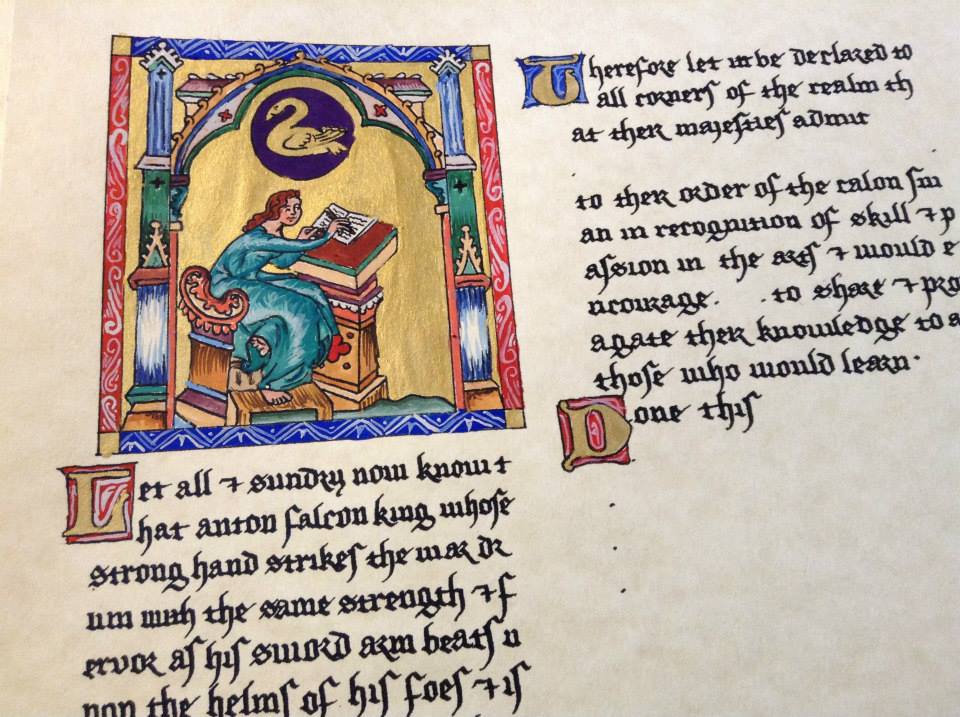 Let all ⁊ sundry now know t
hat anton falcon king whose
strong hand strikes the war dr
um with the same strength ⁊ f
ervor as his sword arm beats u
pon the helms of his foes ⁊ is
Therefore let it be declared to
all corners of the realm th
at ther majesties admit
to ther order of the calon sw
an in recognition of skill ⁊ p
assion in the arts ⁊ would e
ncourage. . to share ⁊ pro
agate ther knowledge to a
those who would learn·
Done this